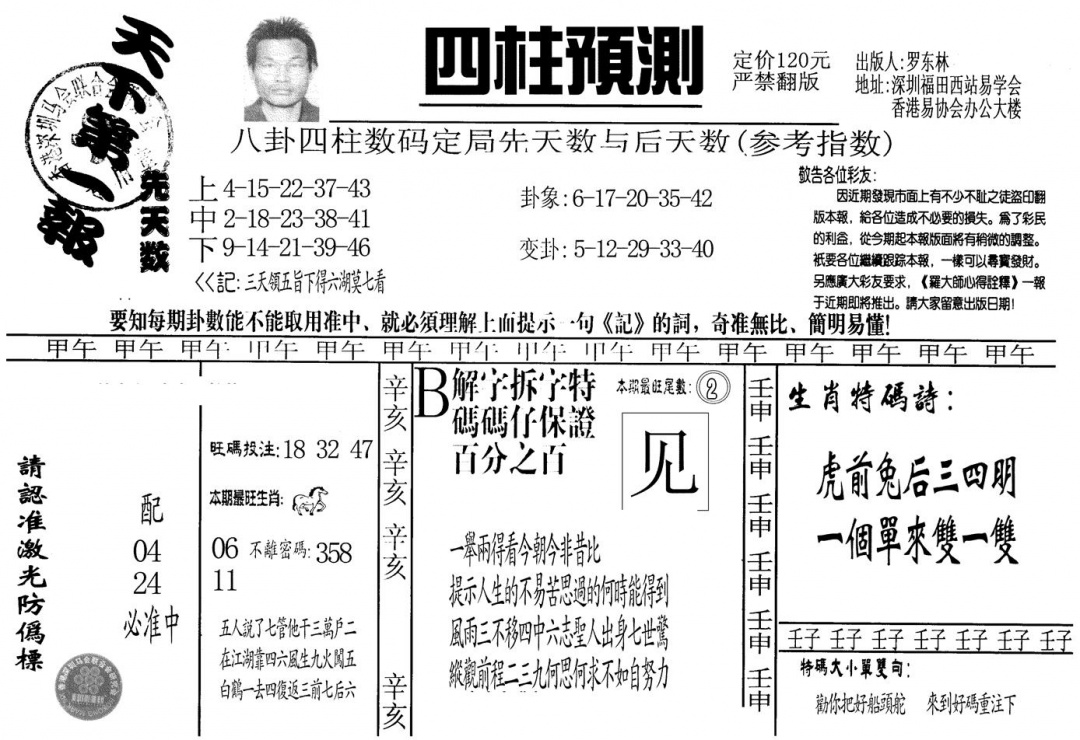 天下第一報
先天数
四柱預測
定价120元
严禁翻版
出版人:罗东林
地址:深圳福田西站易学会
香港易协会办公大楼
八卦四柱数码定局先天数与后天数(参考指数)
上4-15-22-37-43
中2-18-23-38-41
下9-14-21-39-46
<<記:三天領五旨下得六湖莫七看
卦象:6-17-20-35-42
变卦:5-12-29-33-40
敬告各位彩友:
因近期發現市面上有不少不耻之徒盜印翻
版本報,給各位造成不必要的損失。爲了彩民
的利益,從今期起本報版面將有稍微的調整。
衹要各位繼續跟踪本報,一樣可以尋寶發財。
另應廣大彩友要求,《羅大師心得詮釋》一報
于近期即將推出。請大家留意出版日期!
要知每期卦數能不能取用准中、就必須理解上面提示一句《記》的詞,奇准無比、簡明易懂!
甲午 甲午 甲午 甲午 甲午 甲午 甲午 甲午 甲午 甲午 甲午 甲午 甲午 甲午 甲午
請認准激光防僞標
配
04
24
必准中
旺碼投注:18 32 47
本期最旺生肖:
06 不離密碼:358
11
五人説了七管他十三萬戶二
在江湖靠四六風生九火闖五
白鶴一去四復返三前七后六
辛亥
辛亥
辛亥
辛亥
B解字拆字特
碼碼仔保證
百分之百
本期最旺尾數:②
见
一舉兩得看今朝今非昔比
提示人生的不易苦思過的何時能得到
風雨三不移四中六志聖人出身七世驚
縱觀前程二三九何思何求不如自努力
壬申
壬申
壬申
壬申
壬申
壬申
生肖特碼詩:
虎前兔后三四明
一個單來雙一雙
壬子 壬子 壬子 壬子 壬子 壬子 壬子
特碼大小單雙句:
勸你把好船頭舵 來到好碼重注下